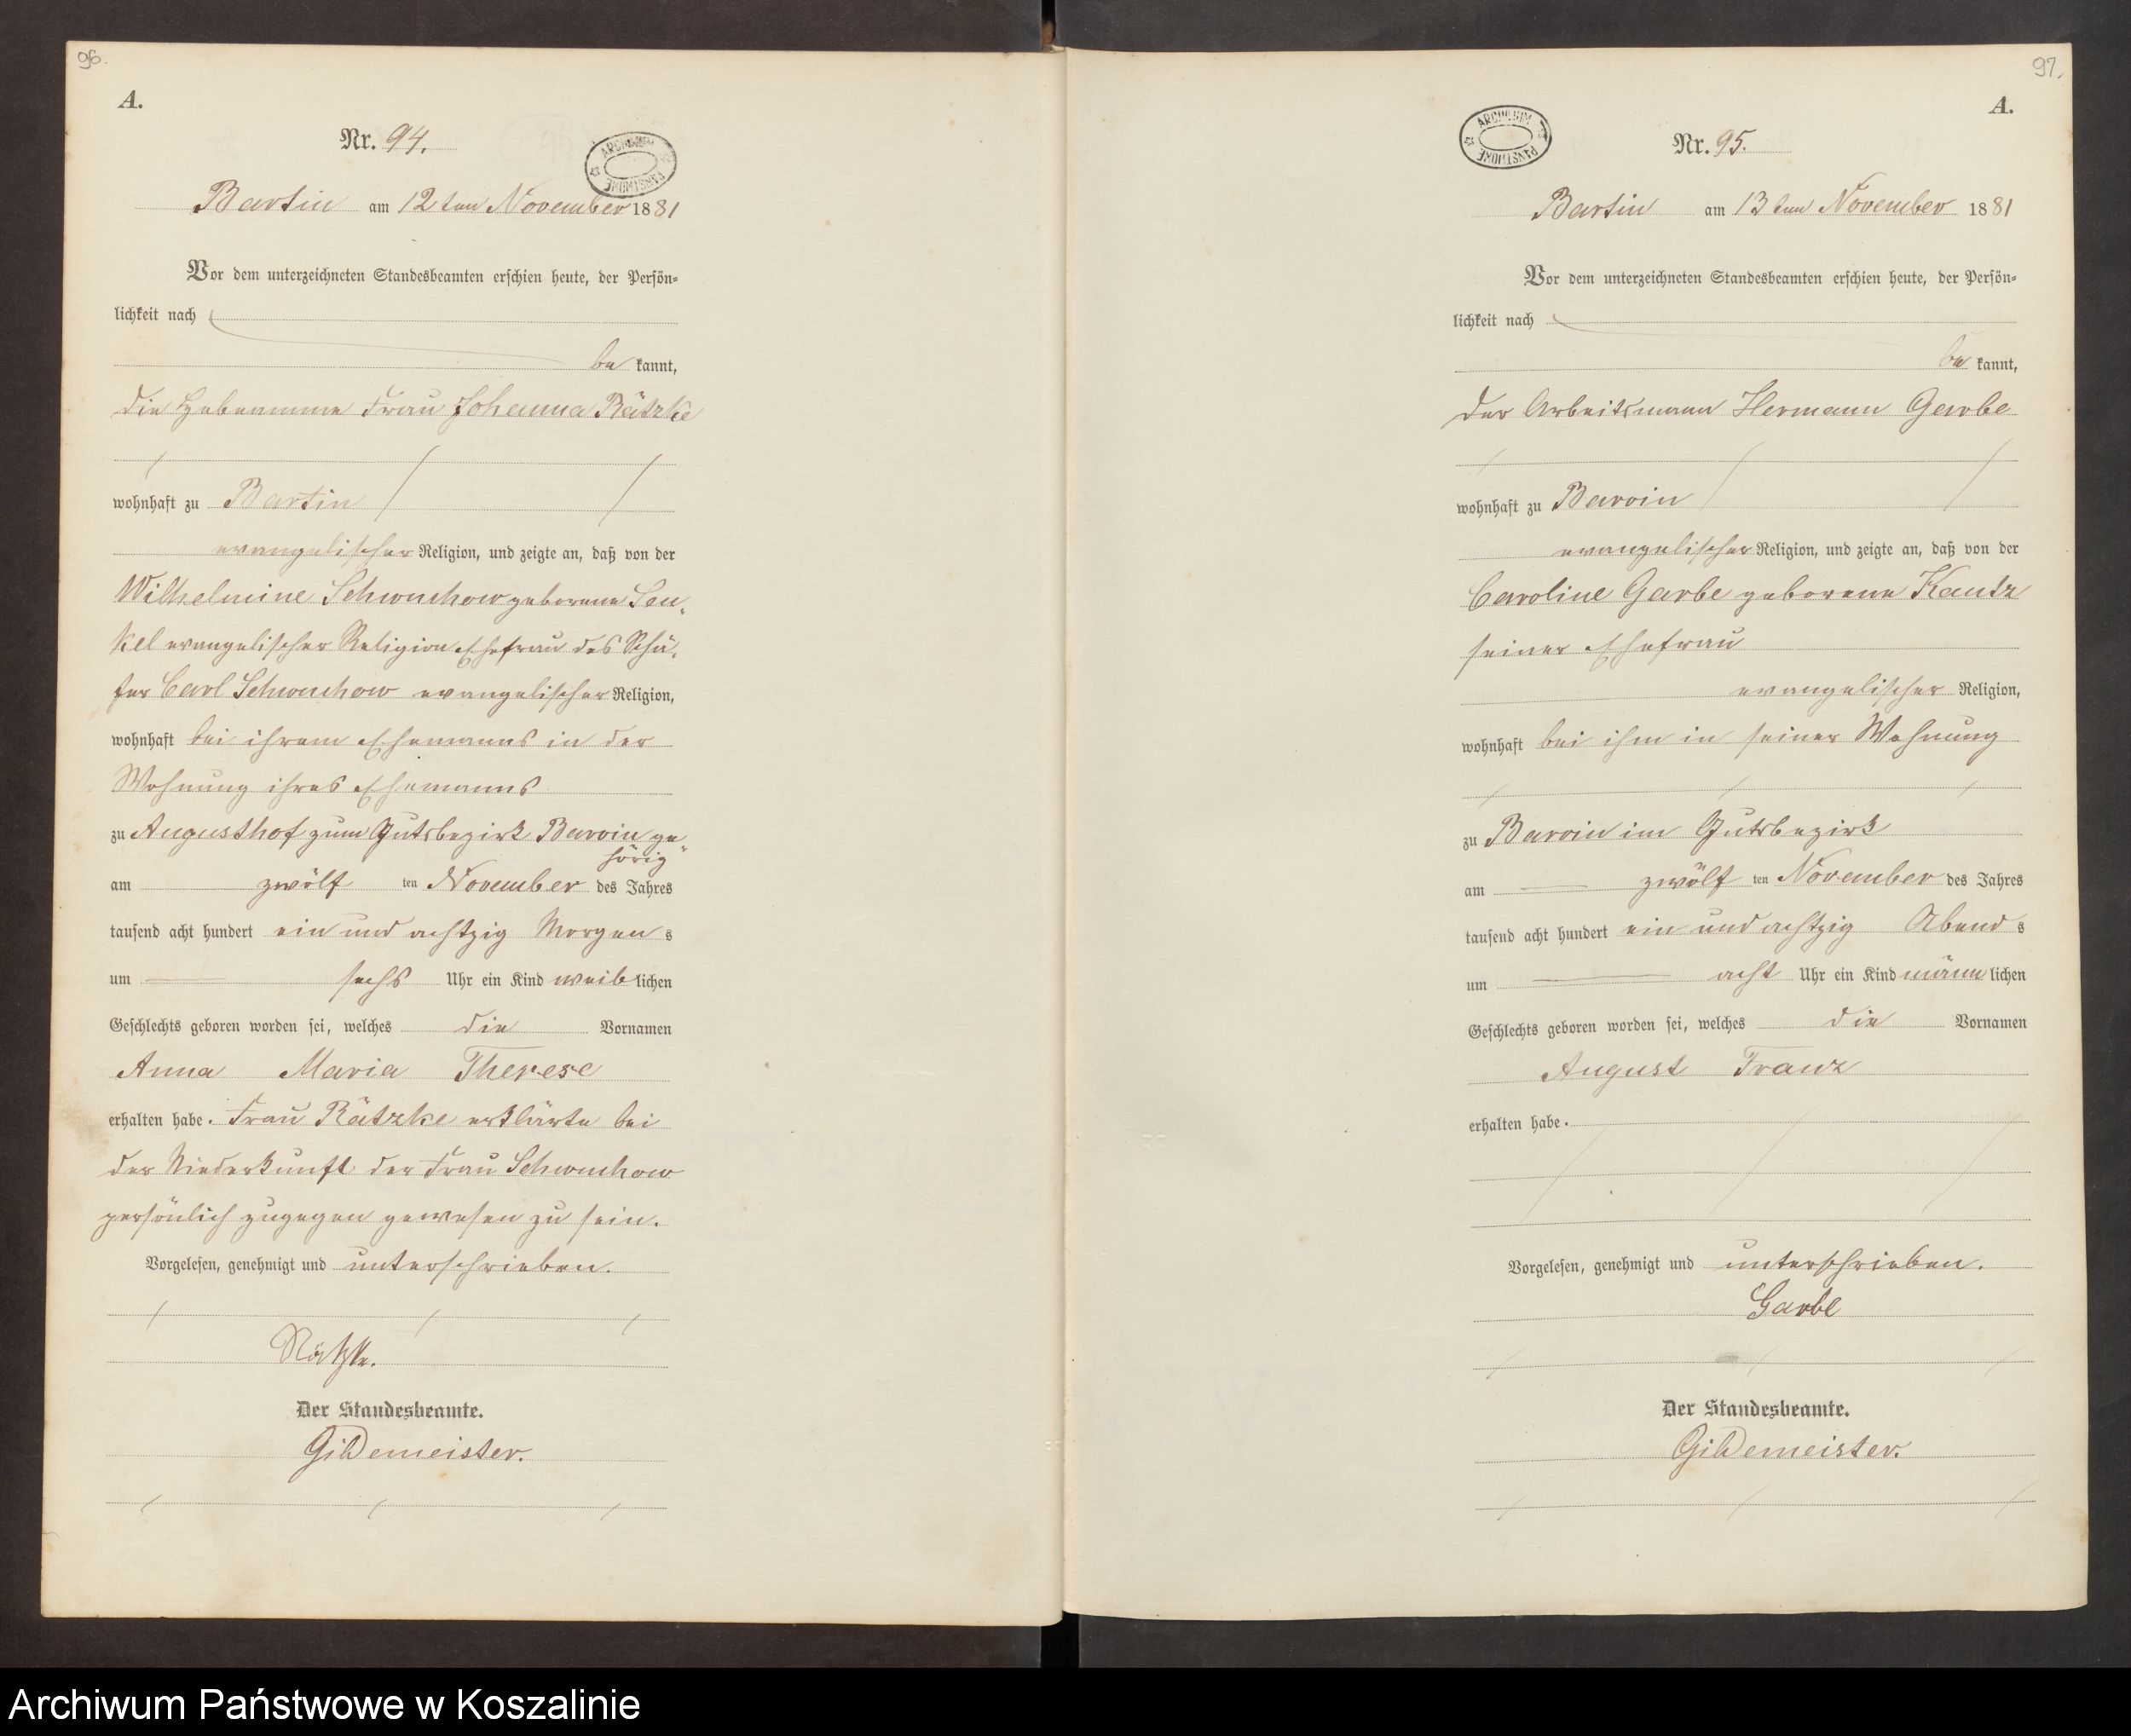 96.
A.
Nr. 94.
ARCHIWUM PAŃSTWOWE
Bartin am 12ten November 1881
Vor dem unterzeichneten Standesbeamten erschien heute, der Persön-
lichkeit nach
be kannt,
die Hebeamme Frau Johanna Rätzke
wohnhaft zu Bartin
evangelischer Religion, und zeigte an, daß von der
Wilhelmine Schwuchow geborene Sen-
kel evangelischer Religion Ehefrau des Schä-
fer Carl Schwuchow evangelischer Religion,
wohnhaft bei ihrem Ehemanns in der
Wohnung ihres Ehemanns
zu Augusthof zum Gutsbezirk Barvin ge-
hörig
am zwölf ten November des Jahres
tausend acht hundert ein und achtzig Morgen s
um sechs Uhr ein Kind weib lichen
Geschlechts geboren worden sei, welches die Vornamen
Anna Maria Therese
erhalten habe. Frau Rätzke erklärte bei
der Niederkunft der Frau Schwuchow
persönlich zugegen gewesen zu sein.
Vorgelesen, genehmigt und unterschrieben.
Rätzke.
Der Standesbeamte.
Gildemeister.
97.
A.
ARCHIWUM PAŃSTWOWE
Nr. 95.
Bartin am 13ten November 1881
Vor dem unterzeichneten Standesbeamten erschien heute, der Persön-
lichkeit nach
be kannt,
der Arbeitsmann Hermann Garbe
wohnhaft zu Barvin
evangelischer Religion, und zeigte an, daß von der
Caroline Garbe geborene Kautz
seiner Ehefrau
evangelischer Religion,
wohnhaft bei ihm in seiner Wohnung
zu Barvin im Gutsbezirk
am zwölf ten November des Jahres
tausend acht hundert ein und achtzig Abend s
um acht Uhr ein Kind männ lichen
Geschlechts geboren worden sei, welches die Vornamen
August Franz
erhalten habe.
Vorgelesen, genehmigt und unterschrieben.
Garbe
Der Standesbeamte.
Gildemeister.
Archiwum Państwowe w Koszalinie